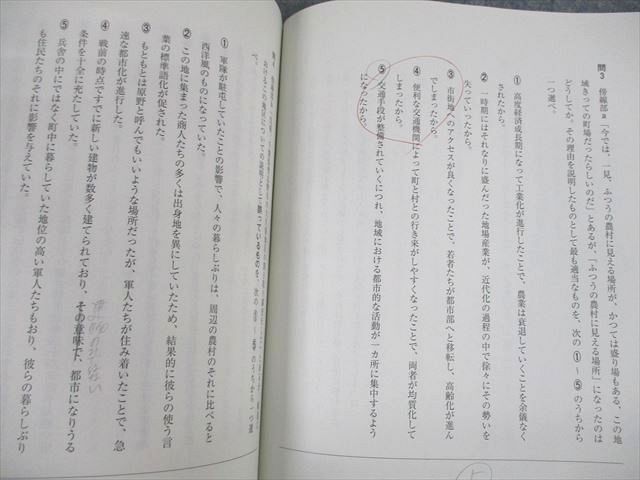 問3 傍線部a「今では、一見、ふつうの農村に見える場所が、かつては盛り場もある、この地
域きっての町場だったらしいのだ」とあるが、「ふつうの農村に見える場所」になったのは
どうしてか。その理由を説明したものとして最も適当なものを、次の①～⑤のうちから
一つ選べ。
① 高度経済成長期になって工業化が進行したことで、農業は衰退していくことを余儀なく
されたから。
② 一時期にはそれなりに盛んだった地場産業が、近代化の過程の中で徐々にその勢いを
失っていったから。
③ 市街地へのアクセスが良くなったことで、若者たちが都市部へと移転し、高齢化が進ん
でしまったから。
④ 便利な交通機関によって町と村との行き来がしやすくなったことで、両者が均質化して
しまったから。
⑤ 交通手段が整備されていくにつれ、地域における都市的な活動が一カ所に集中するよう
になったから。
5
の説明として誤っているものを、次の①～⑤のうちから一つ選
べ。
① 軍隊が駐屯していたことの影響で、人々の暮らしぶりは、周辺の農村のそれに比べると
西洋風のものになっていた。
② この地に集まった商人たちの多くは出身地を異にしていたため、結果的に彼らの使う言
葉の標準語化が促された。
③ もともとは原野と呼んでもいいような場所だったが、軍人たちが住み着いたことで、急
速な都市化が進行した。
④ 戦前の時点ですでに新しい建物が数多く建てられており、その意味で、都市になりうる
条件を十全に充たしていた。
⑤ 兵舎の中にではなく町中に暮らしていた地位の高い軍人たちもおり、彼らの暮らしぶり
も住民たちのそれに影響を与えていた。